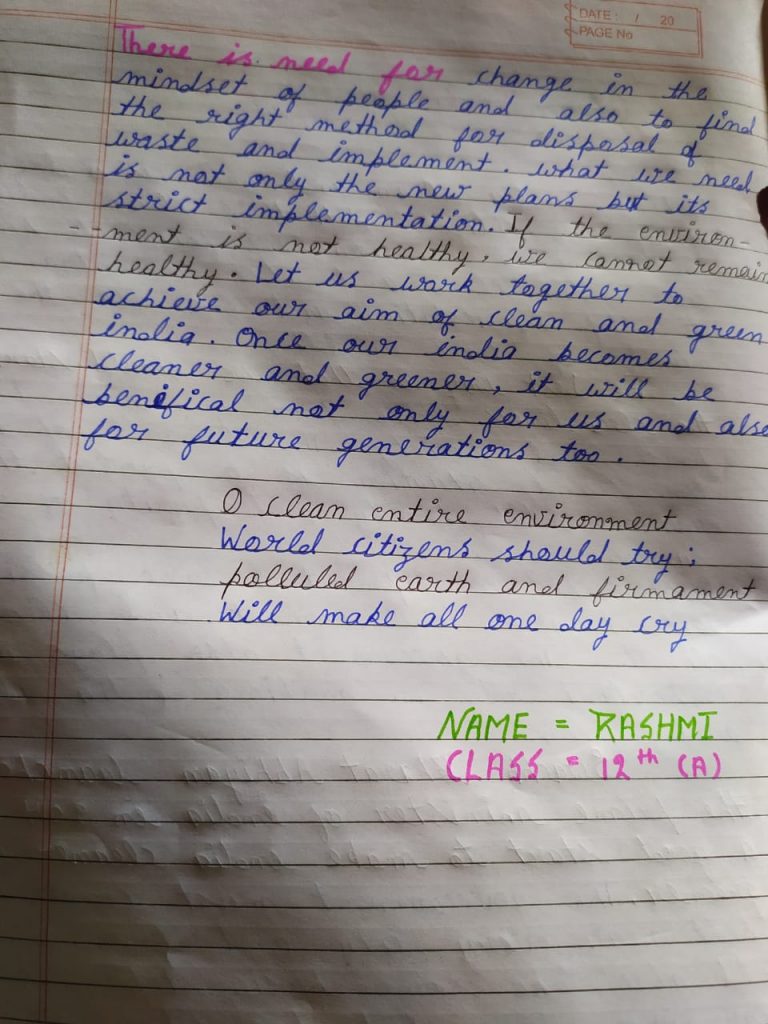 DATE: / 20
PAGE No
There is need for change in the
mindset of people and also to find
the right method for disposal of
waste and implement. what we need
is not only the new plans but its
strict implementation. If the environ-
-ment is not healthy, we cannot remain
healthy. Let us work together to
achieve our aim of clean and green
india. Once our india becomes
cleaner and greener, it will be
benifical not only for us and also
for future generations too.
O clean entire environment
World citizens should try;
polluled earth and firmament
Will make all one day cry
NAME = RASHMI
CLASS = 12th (A)